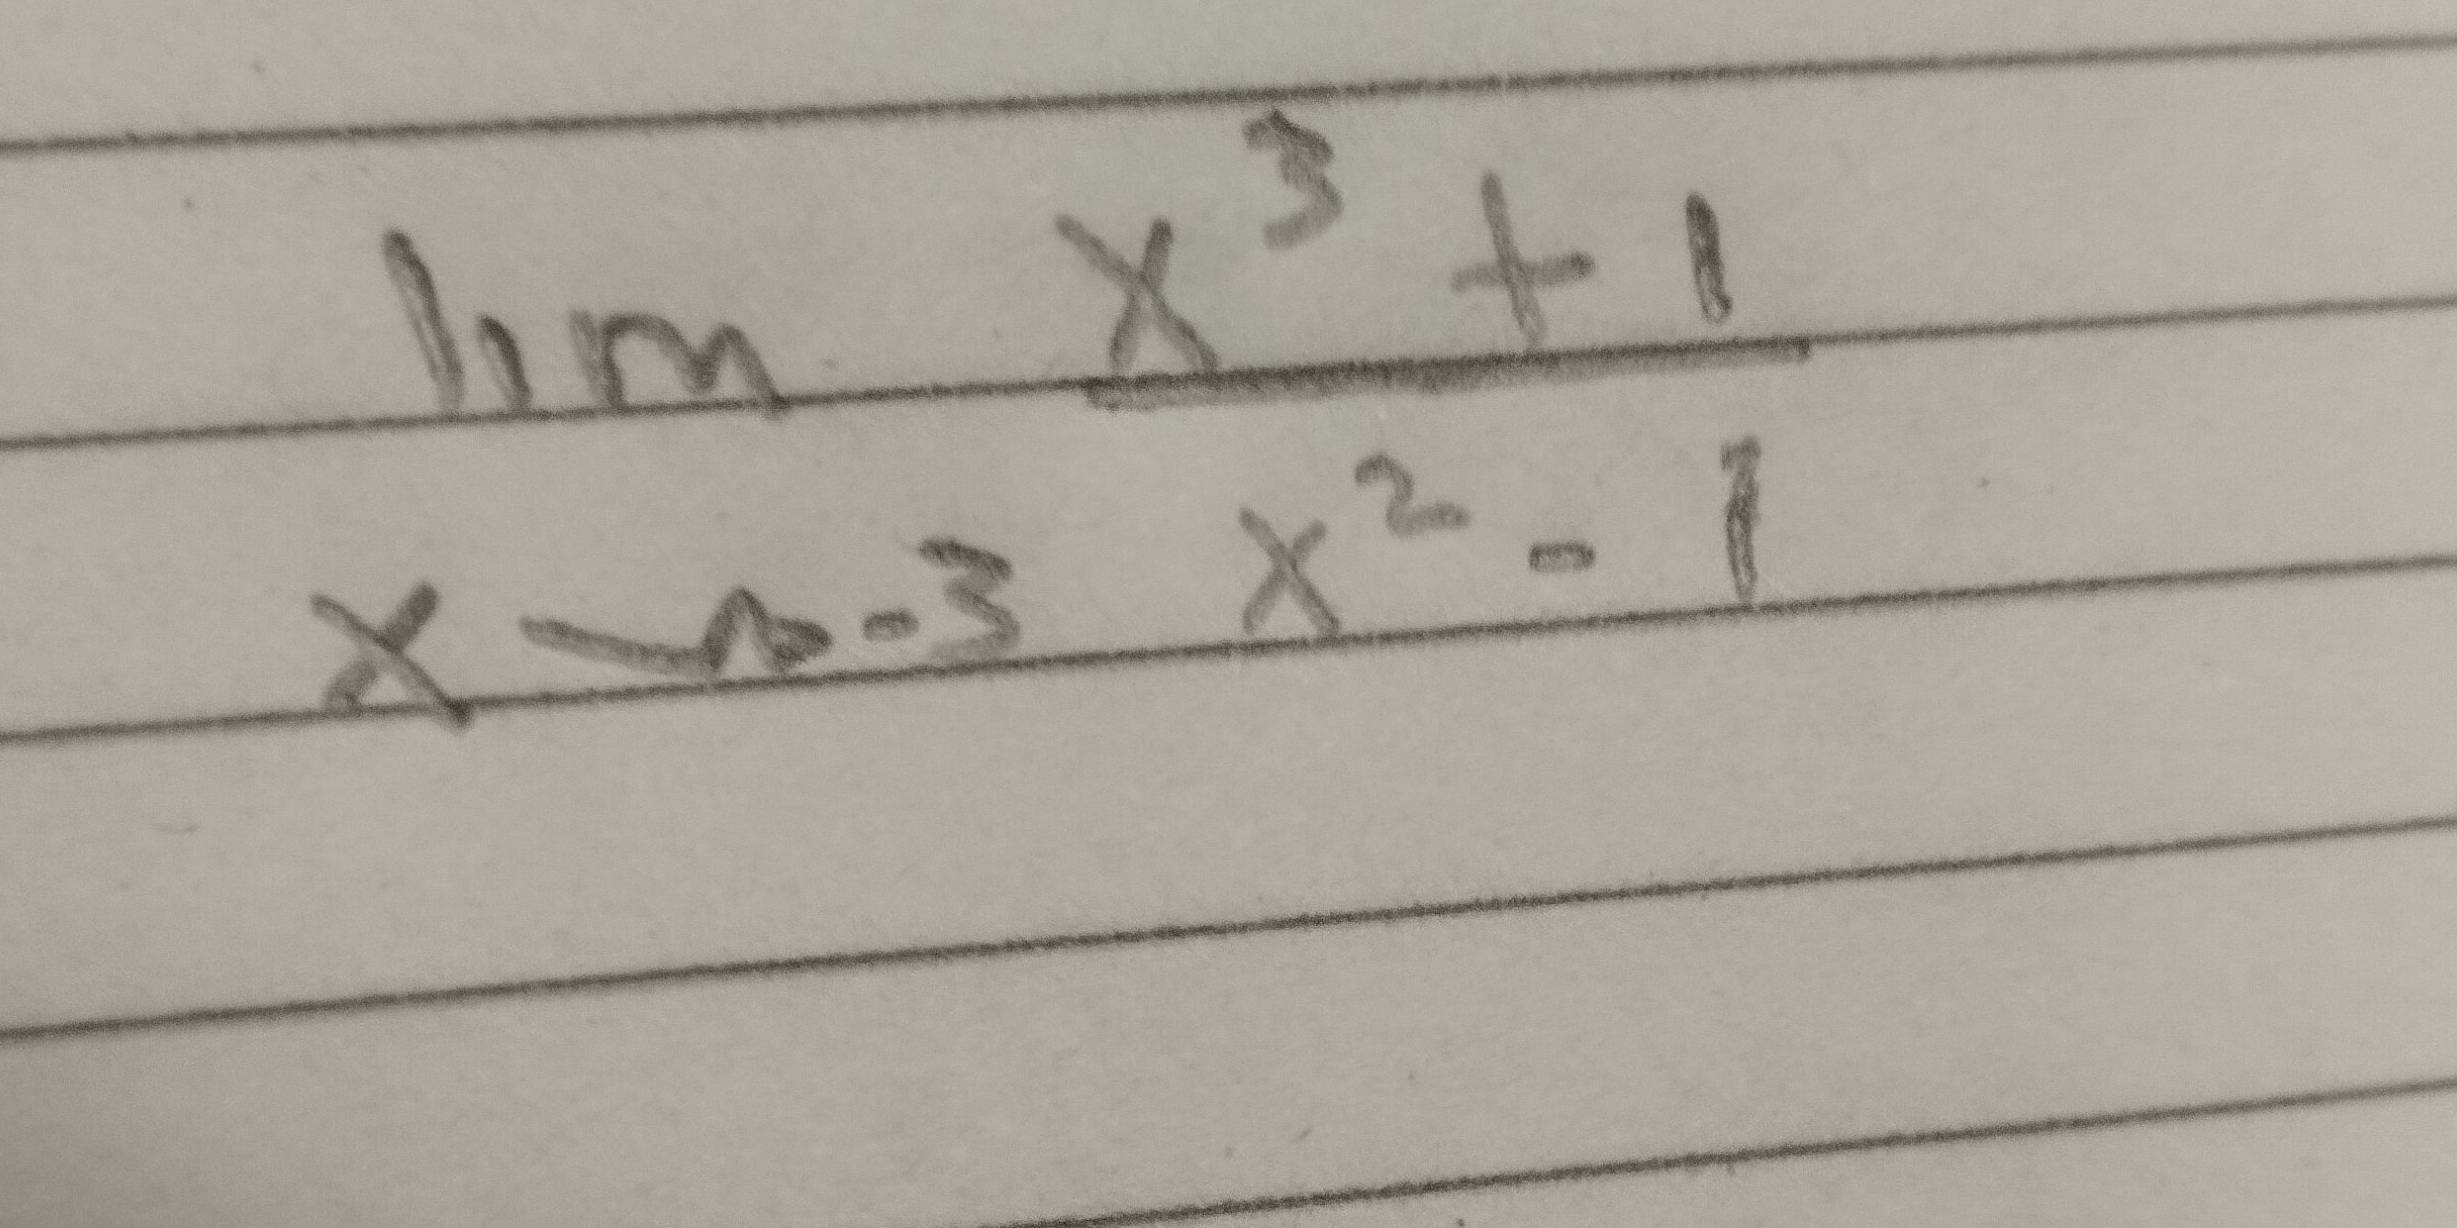 lim x³ + 1
x → -3 x² - 1